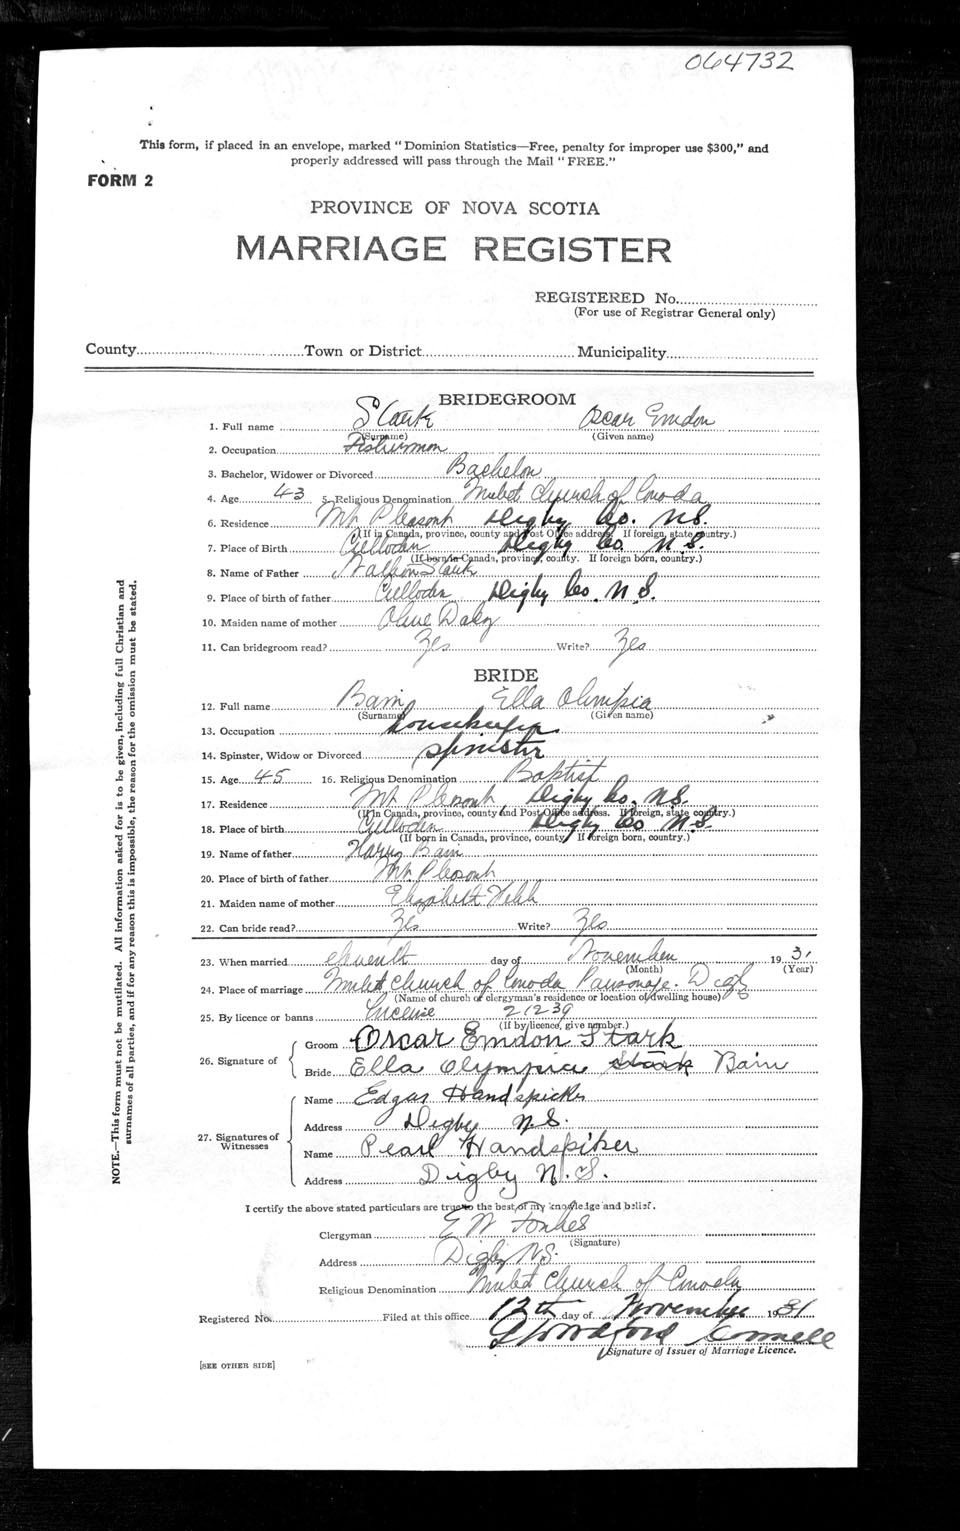 064732
This form, if placed in an envelope, marked "Dominion Statistics—Free, penalty for improper use $300," and
properly addressed will pass through the Mail "FREE."
FORM 2
PROVINCE OF NOVA SCOTIA
MARRIAGE REGISTER
REGISTERED No.
(For use of Registrar General only)
County Town or District Municipality
BRIDEGROOM
1. Full name Stark Oscar Emdon
(Surname) (Given name)
2. Occupation Fisherman
3. Bachelor, Widower or Divorced Bachelor
4. Age 43 5. Religious Denomination United Church of Canada
6. Residence Mt Pleasant Digby Co. N.S.
(If in Canada, province, county and Post Office address. If foreign, state country.)
7. Place of Birth Culloden Digby Co. N.S.
(If born in Canada, province, county. If foreign born, country.)
8. Name of Father Stark
9. Place of birth of father Culloden Digby Co. N.S.
10. Maiden name of mother Olive Daley
11. Can bridegroom read? Yes Write? Yes
BRIDE
12. Full name Bain Ella Olimpia
(Surname) (Given name)
13. Occupation housekeeper
14. Spinster, Widow or Divorced spinster
15. Age 45 16. Religious Denomination Baptist
17. Residence Mt Pleasant Digby Co. N.S.
(If in Canada, province, county and Post Office address. If foreign, state country.)
18. Place of birth Culloden Digby Co N.S.
(If born in Canada, province, county. If foreign born, country.)
19. Name of father Harry Bain
20. Place of birth of father Mt. Pleasant
21. Maiden name of mother Elizabeth Webb
22. Can bride read? Yes Write? Yes
23. When married eleventh day of November 1931
(Month) (Year)
24. Place of marriage United Church of Canada Parsonage. Digby
(Name of church or clergyman's residence or location of dwelling house)
25. By licence or banns Licence 21239
(If by licence, give number.)
26. Signature of
Groom Oscar Emdon Stark
Bride Ella Olympia Stark Bain
27. Signatures of Witnesses
Name Edgar Handspiker
Address Digby N.S.
Name Pearl Handspiker
Address Digby N.S.
I certify the above stated particulars are true to the best of my knowledge and belief.
Clergyman E W Forbes
(Signature)
Address Digby N.S.
Religious Denomination United Church of Canada
Registered No. Filed at this office 12th day of November 1931
Connell
Signature of Issuer of Marriage Licence.
[SEE OTHER SIDE]
NOTE.—This form must not be mutilated. All information asked for is to be given, including full Christian and
surnames of all parties, and if for any reason this is impossible, the reason for the omission must be stated.